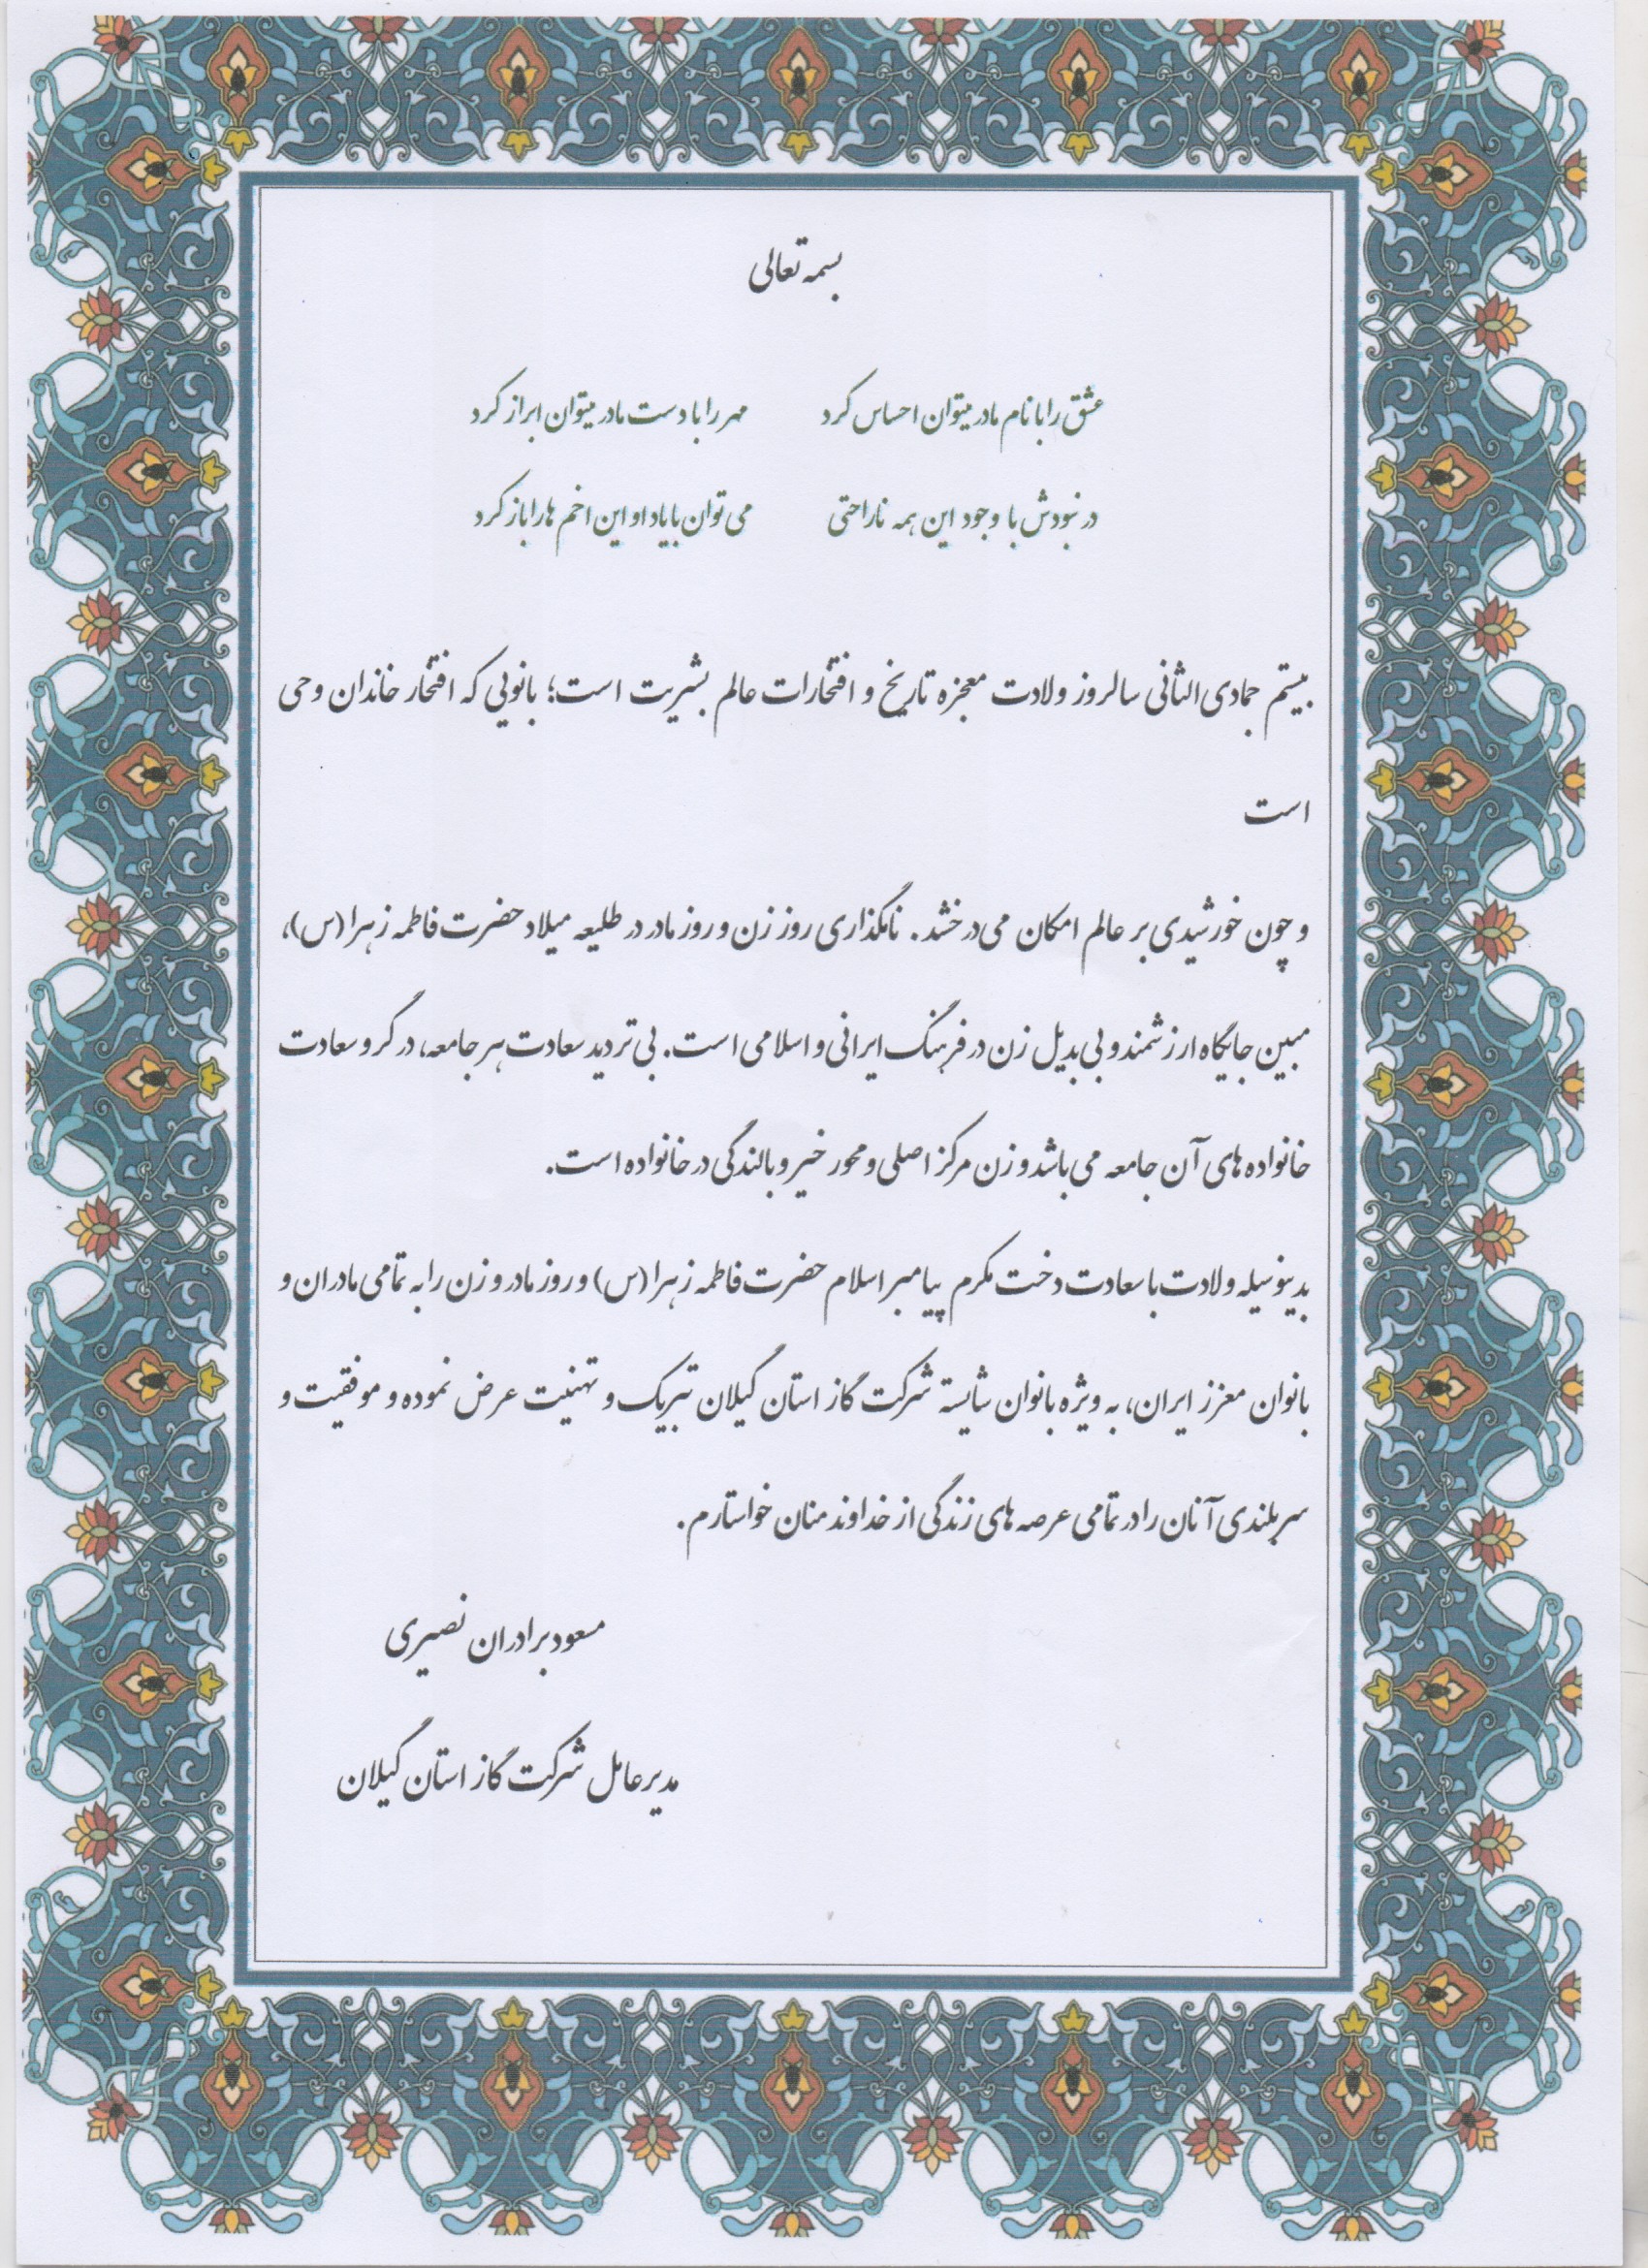 بسمه تعالی
عشق را با نام مادر میتوان احساس کرد مهر را با دست مادر میتوان ابراز کرد
در نبودش با وجود این همه ناراحتی می توان با یاد او این اخم ها را باز کرد
بیستم جمادی الثانی سالروز ولادت معجزه تاریخ و افتخارات عالم بشریت است؛ بانویی که افتخار خاندان وحی
است
و چون خورشیدی بر عالم امکان می‌درخشد. نامگذاری روز زن و روز مادر در طلیعه میلاد حضرت فاطمه زهرا (س)،
مبین جایگاه ارزشمند و بی بدیل زن در فرهنگ ایرانی و اسلامی است. بی تردید سعادت هر جامعه، در گرو سعادت
خانواده های آن جامعه می باشد و زن مرکز اصلی و محور خیر و بالندگی در خانواده است.
بدینوسیله ولادت با سعادت دخت مکرم پیامبر اسلام حضرت فاطمه زهرا (س) و روز مادر و زن را به تمامی مادران و
بانوان معزز ایران، به ویژه بانوان شایسته شرکت گاز استان گیلان تبریک و تهنیت عرض نموده و موفقیت و
سربلندی آنان را در تمامی عرصه های زندگی از خداوند منان خواستارم.
مسعود برادران نصیری
مدیرعامل شرکت گاز استان گیلان